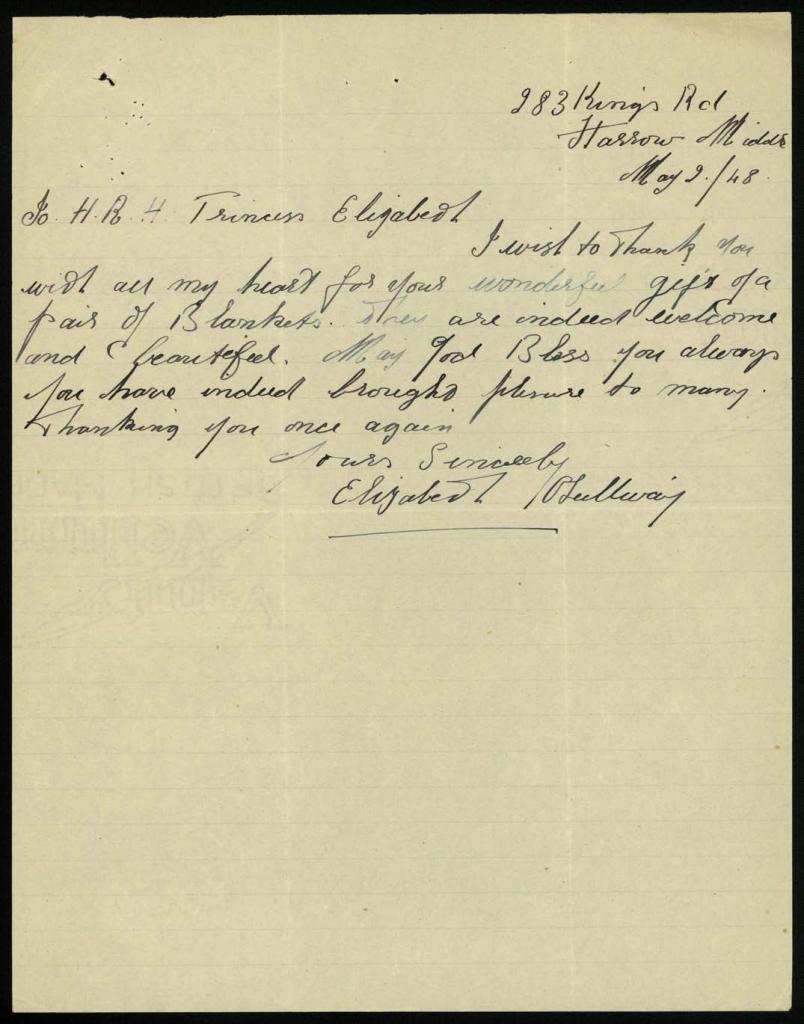 283 Kings Rd
Harrow Middx
May 2./48.
To H.R.H. Princess Elizabeth
I wish to thank you
with all my heart for your wonderful gift of a
pair of Blankets. They are indeed welcome
and beautiful. May God Bless you always
you have indeed brought plesure to many.
Thanking you once again
Yours Sincerely
Elizabeth